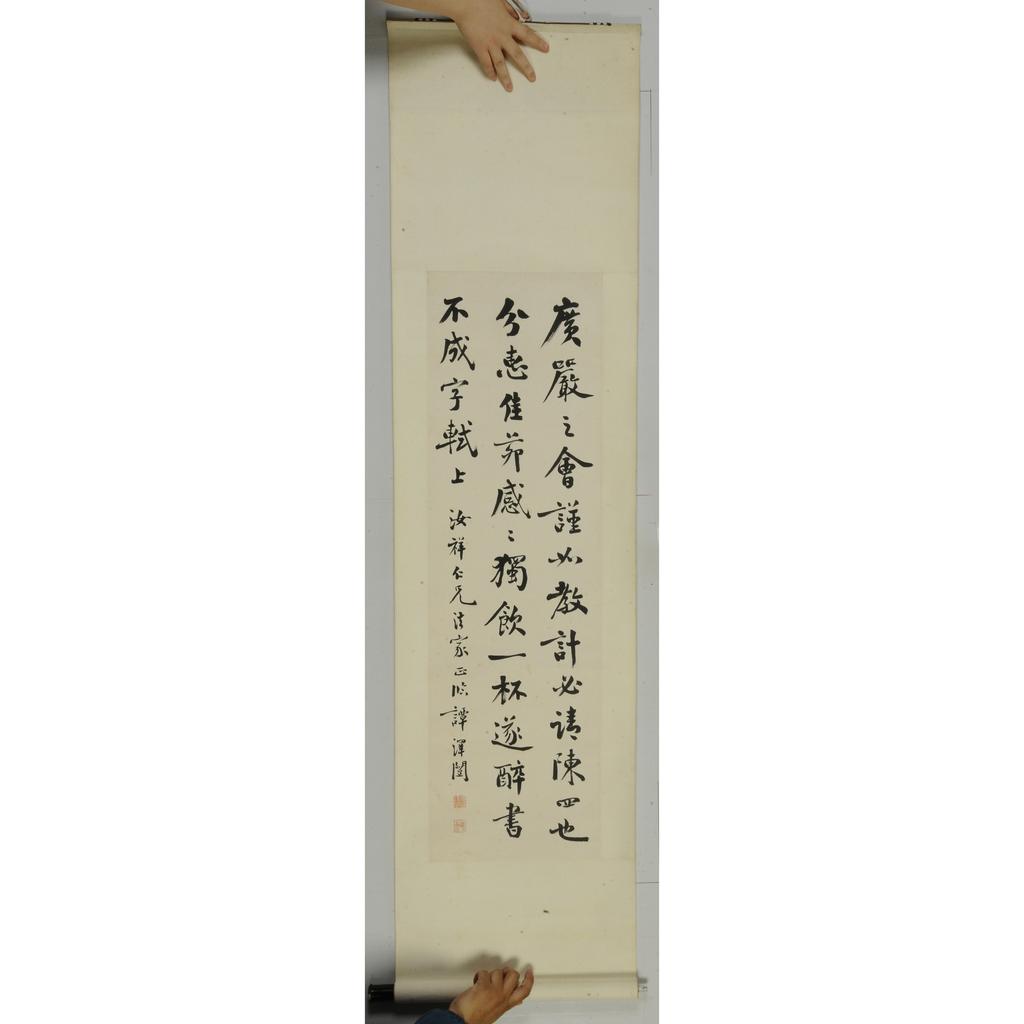 廣嚴之會謹如教計必請陳四也
分惠佳茆感〻獨飲一杯遂醉書
不成字軾上 汝祥仁兄法家正臨譚澤闓